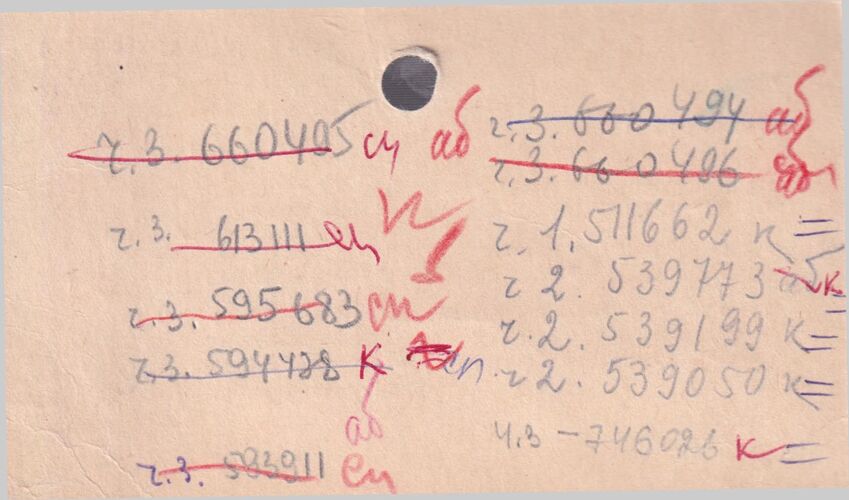 ч.3. 660495 сп аб
ч.3. 613111 сп к
ч.3. 595683 сп
ч.3. 594428 к сп
аб
ч.3. 593911 сп
ч.3. 660494 аб
ч.3. 660496
ч.1. 511662 к =
ч 2. 539773 аб к =
ч.2. 539199 к =
ч 2. 539050 к =
ч.3 - 746026 к =